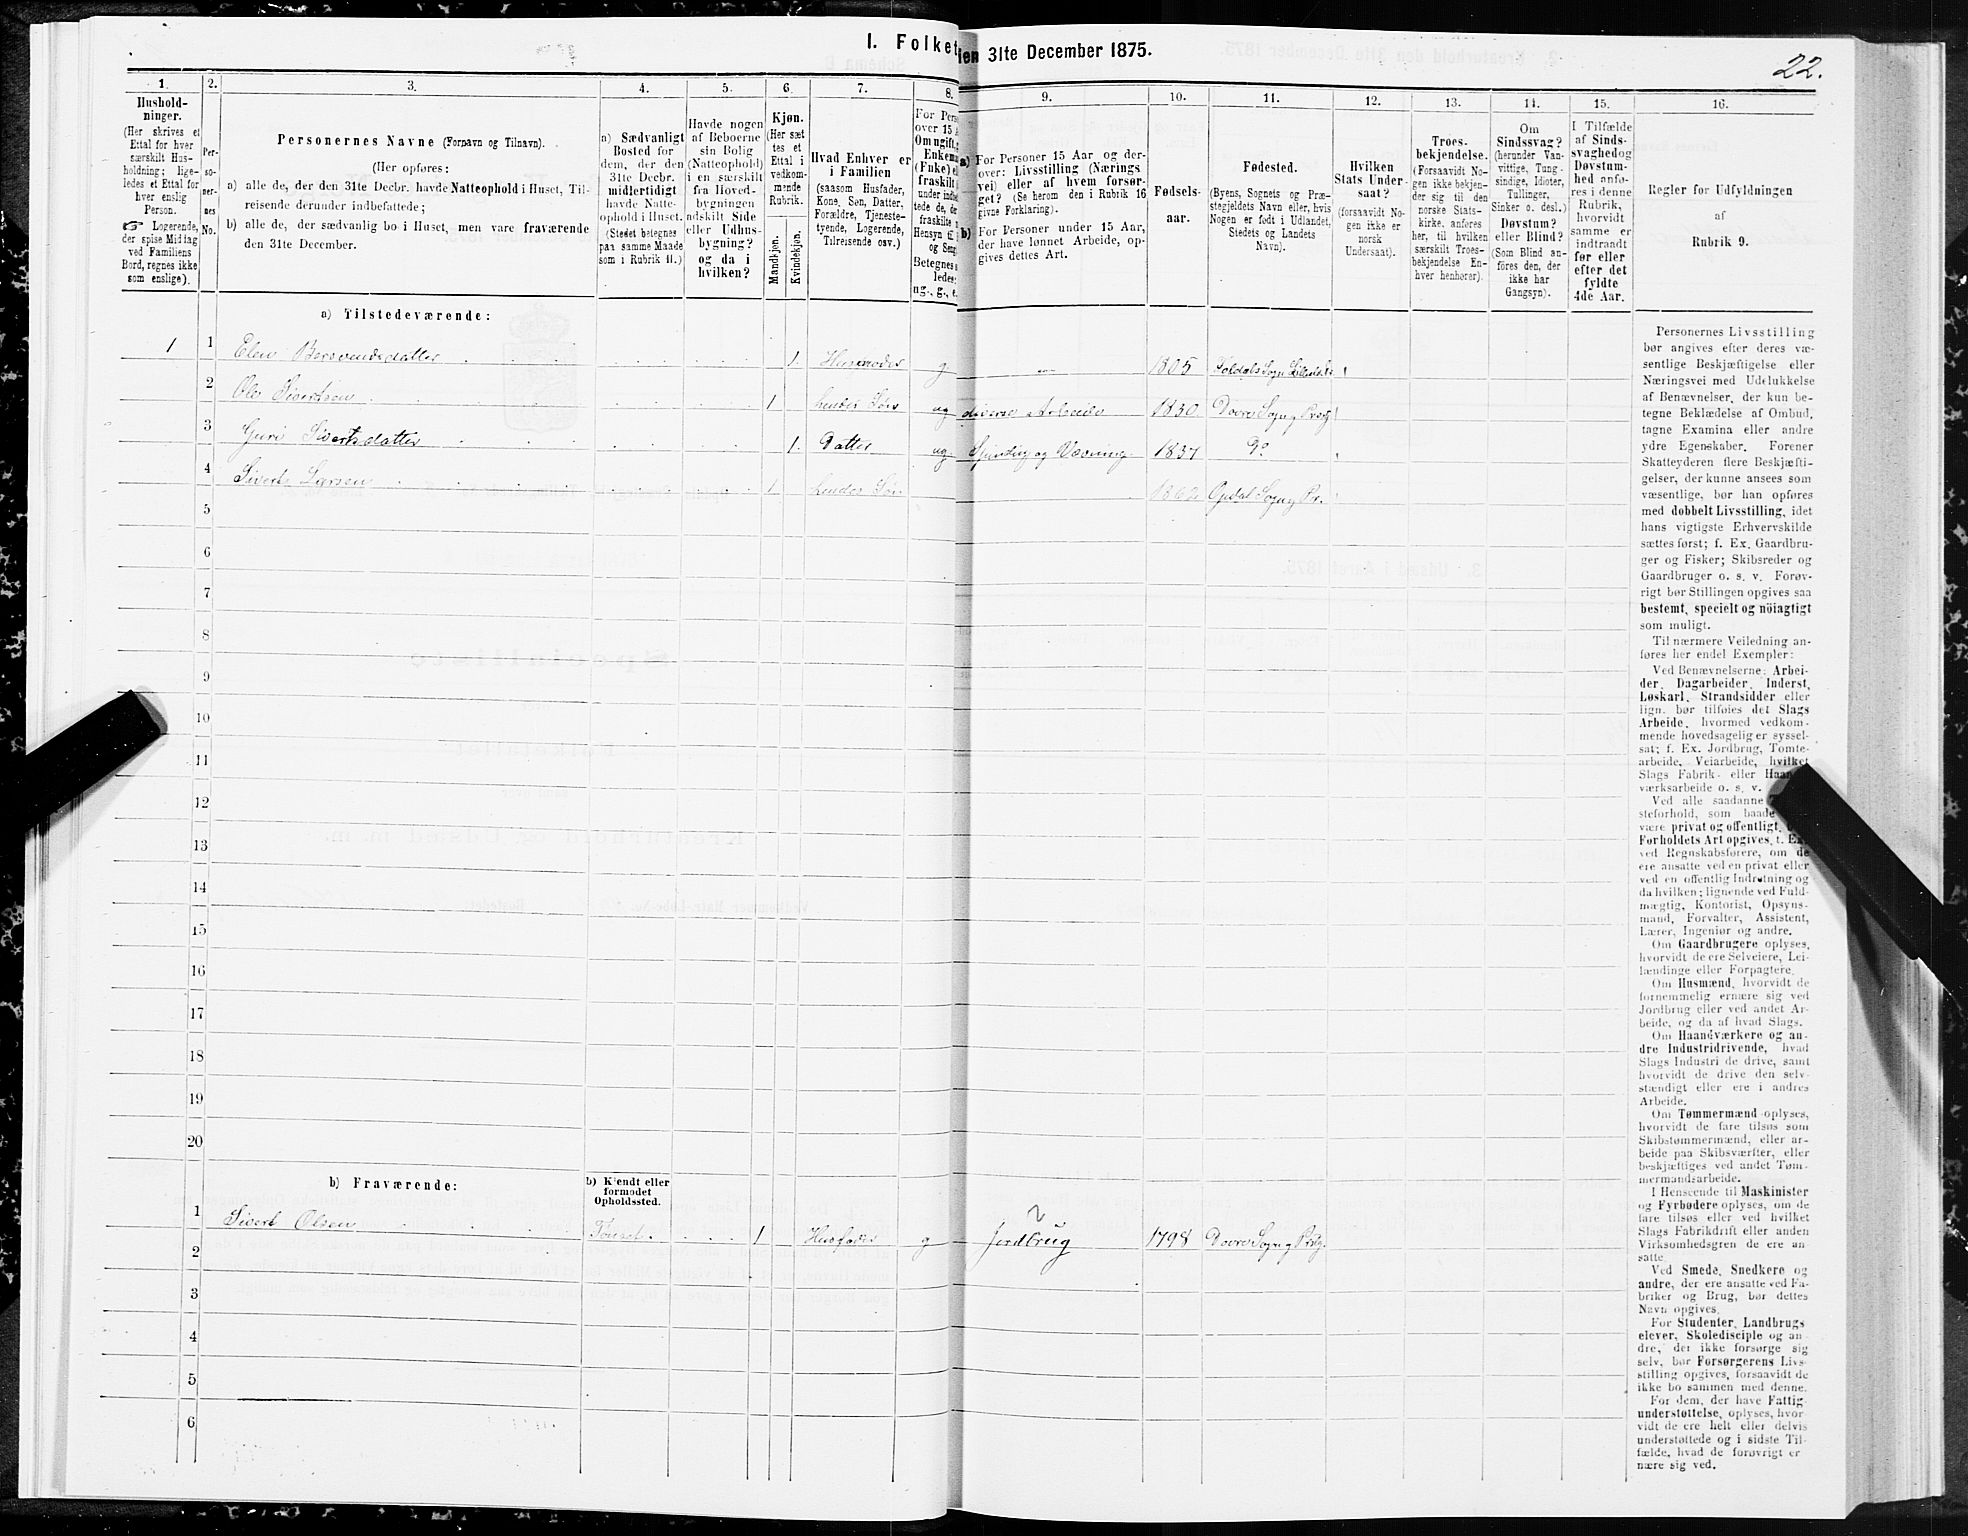 I. Folket
len 31te December 1875.
22.
1.
2.
3.
4.
5.
6.
7.
8.
9.
10.
11.
12.
13.
14.
15.
16.
Hushold-
ninger.
(Her skrives et
Ettal for hver
særskilt Hus-
holdning; lige-
ledes et Ettal for
hver enslig
Person.
Logerende,
der spise Middag
ved Familiens
Bord, regnes ikke
som enslige).
Per-
so-
ner-
nes
No.
Personernes Navne (Fornavn og Tilnavn).
(Her opføres:
a) alle de, der den 31te Decbr. havde Natteophold i Huset, Til-
reisende derunder indbefattede;
b) alle de, der sædvanlig bo i Huset, men vare fraværende
den 31te December.
a) Sædvanligt
Bosted for
dem, der den
31te Decbr.
midlertidigt
havde Natte-
ophold i Huset.
(Stedet betegnes
paa samme Maade
som i Rubrik 11.)
Havde nogen
af Beboerne
sin Bolig
(Natteophold)
i en særskilt
fra Hoved-
bygningen
adskilt Side
eller Udhus-
bygning?
og da i
hvilken?
Kjøn.
(Her sæt
tes et
Ettal i
vedkom-
mende
Rubrik.
Mandkjøn.
Kvindekjøn.
Hvad Enhver er
i Familien
(saasom Husfader,
Kone, Søn, Datter,
Forældre, Tjeneste-
tyende, Logerende,
Tilreisende osv.)
For Pers
over 15 A
Om ugift, g
Enkema
(Enke) el
fraskilt
under indbe
tede de, de
fraskilte
Hensyn til
og Seng
Betegnes s
ledes:
ug., g., e.
a) For Personer 15 Aar og der-
over: Livsstilling (Nærings
vei) eller af hvem forsør-
get? (Se herom den i Rubrik 16
givne Forklaring).
b) For Personer under 15 Aar,
der have lønnet Arbeide, op-
gives dettes Art.
Fødsels-
aar.
Fødested.
(Byens, Sognets og Præ-
stegjeldets Navn eller, hvis
Nogen er født i Udlandet,
Stedets og Landets
Navn).
Hvilken
Stats Under-
saat?
(forsaavidt No-
gen ikke er
norsk
Undersaat).
Troes-
bekjendelse.
(Forsaavidt No-
gen ikke bekjen-
der sig til den
norske Stats-
kirke, anføres
her, til hvilken
særskilt Troes-
bekjendelse En-
hver henhører).
Om
Sindssvag?
(herunder Van-
vittige, Tung-
sindige, Idioter,
Tullinger,
Sinker o. desl.)
Døvstum?
eller Blind?
(Som Blind an-
føres den, der
ikke har
Gangsyn).
I Tilfælde
af Sinds-
svaghed og
Døvstum-
hed anfø-
res i denne
Rubrik,
hvorvidt
samme er
indtraadt
før eller
efter det
fyldte
4de Aar.
Regler for Udfyldningen
af
Rubrik 9.
a) Tilstedeværende:
1 1 Elen Bersvendsdatter 1. Husmoder g 1805 Foldals Sogn
2 Ole Sivertsen 1 hendes Søn ug diverse Arbeide 1830 Dovre Sogn og Præg
3 Guri Sivertsdatter 1. Datter ug. Spinding og Vævning 1837 Do
4 Sivert Larsen 1 hendes Søn 1862 Opdal Sogn og Pr.
5
6
7
8
9
10
11
12
13
14
15
16
17
18
19
20
b) Fraværende:
b) Kjendt eller
formodet
Opholdssted.
1 Sivert Olsen Tønset. 1 Husfader g jordbrug 1798 Dovre Sogn og Præg.
2
3
4
5
6
Personernes Livsstilling
bør angives efter deres væ-
sentlige Beskjæftigelse eller
Næringsvei med Udelukkelse
af Benævnelser, der kun be-
tegne Beklædelse af Ombud,
tagne Examina eller andre
ydre Egenskaber. Forener
Skatteyderen flere Beskjæfti-
gelser, der kunne ansees som
væsentlige, bør han opføres
med dobbelt Livsstilling, idet
hans vigtigste Erhvervskilde
sættes først; f. Ex. Gaardbru-
ger og Fisker; Skibsreder og
Gaardbruger o. s. v. Forøv-
rigt bør Stillingen opgives saa
bestemt, specielt og nöiagtigt
som muligt.
Til nærmere Veiledning an-
føres her endel Exempler:
Ved Benævnelserne: Arbei-
der, Dagarbeider, Inderst,
Løskarl, Strandsidder eller
lign. bør tilføies det Slags
Arbeide, hvormed vedkom-
mende hovedsagelig er syssel-
sat; f. Ex. Jordbrug, Tomte-
arbeide, Veiarbeide, hvilket
Slags Fabrik- eller Haand
værksarbeide o. s. v.
Ved alle saadanne
steforhold, som baade
være privat og offentligt,
Forholdets Art opgives, t. Ex.
ved Regnskabsførere, om de
ere ansatte ved en privat eller
ved en offentlig Indretning og
da hvilken; lignende ved Fuld-
mægtig, Kontorist, Opsyns-
mand, Forvalter, Assistent,
Lærer, Ingeniør og andre.
Om Gaardbrugere oplyses,
hvorvidt de ere Selveiere, Lei-
lændinge eller Forpagtere.
Om Husmænd, hvorvidt de
fornemmelig ernære sig ved
Jordbrug eller ved andet Ar-
beide, og da af hvad Slags.
Om Haandværkere og an-
dre Industridrivende, hvad
Slags Industri de drive, samt
hvorvidt de drive den selv-
stændigt eller ere i andres
Arbeide.
Om Tømmermænd oplyses,
hvorvidt de fare tilsøs som
Skibstømmermænd, eller ar-
beide paa Skibsværfter, eller
beskjæftiges ved andet Tøm-
mermandsarbeide.
I Henseende til Maskinister
og Fyrbødere oplyses, om de
fare tilsøs eller ved hvilket
Slags Fabrikdrift eller anden
Virksomhedsgren de ere an-
satte.
Ved Smede, Snedkere og
andre, der ere ansatte ved Fa-
briker og Brug, bør dettes
Navn opgives.
For Studenter, Landbrugs
elever, Skoledisciple og an-
dre, der ikke forsørge sig
selv, bør Forsørgerens Livs-
stilling opgives, forsaavidt de
ikke bo sammen med denne.
For dem, der have Fattig-
understøttelse, oplyses, hvor-
vidt de ere helt eller delvis
understøttede og i sidste Til-
fælde, hvad de forøvrigt er-
nære sig ved.